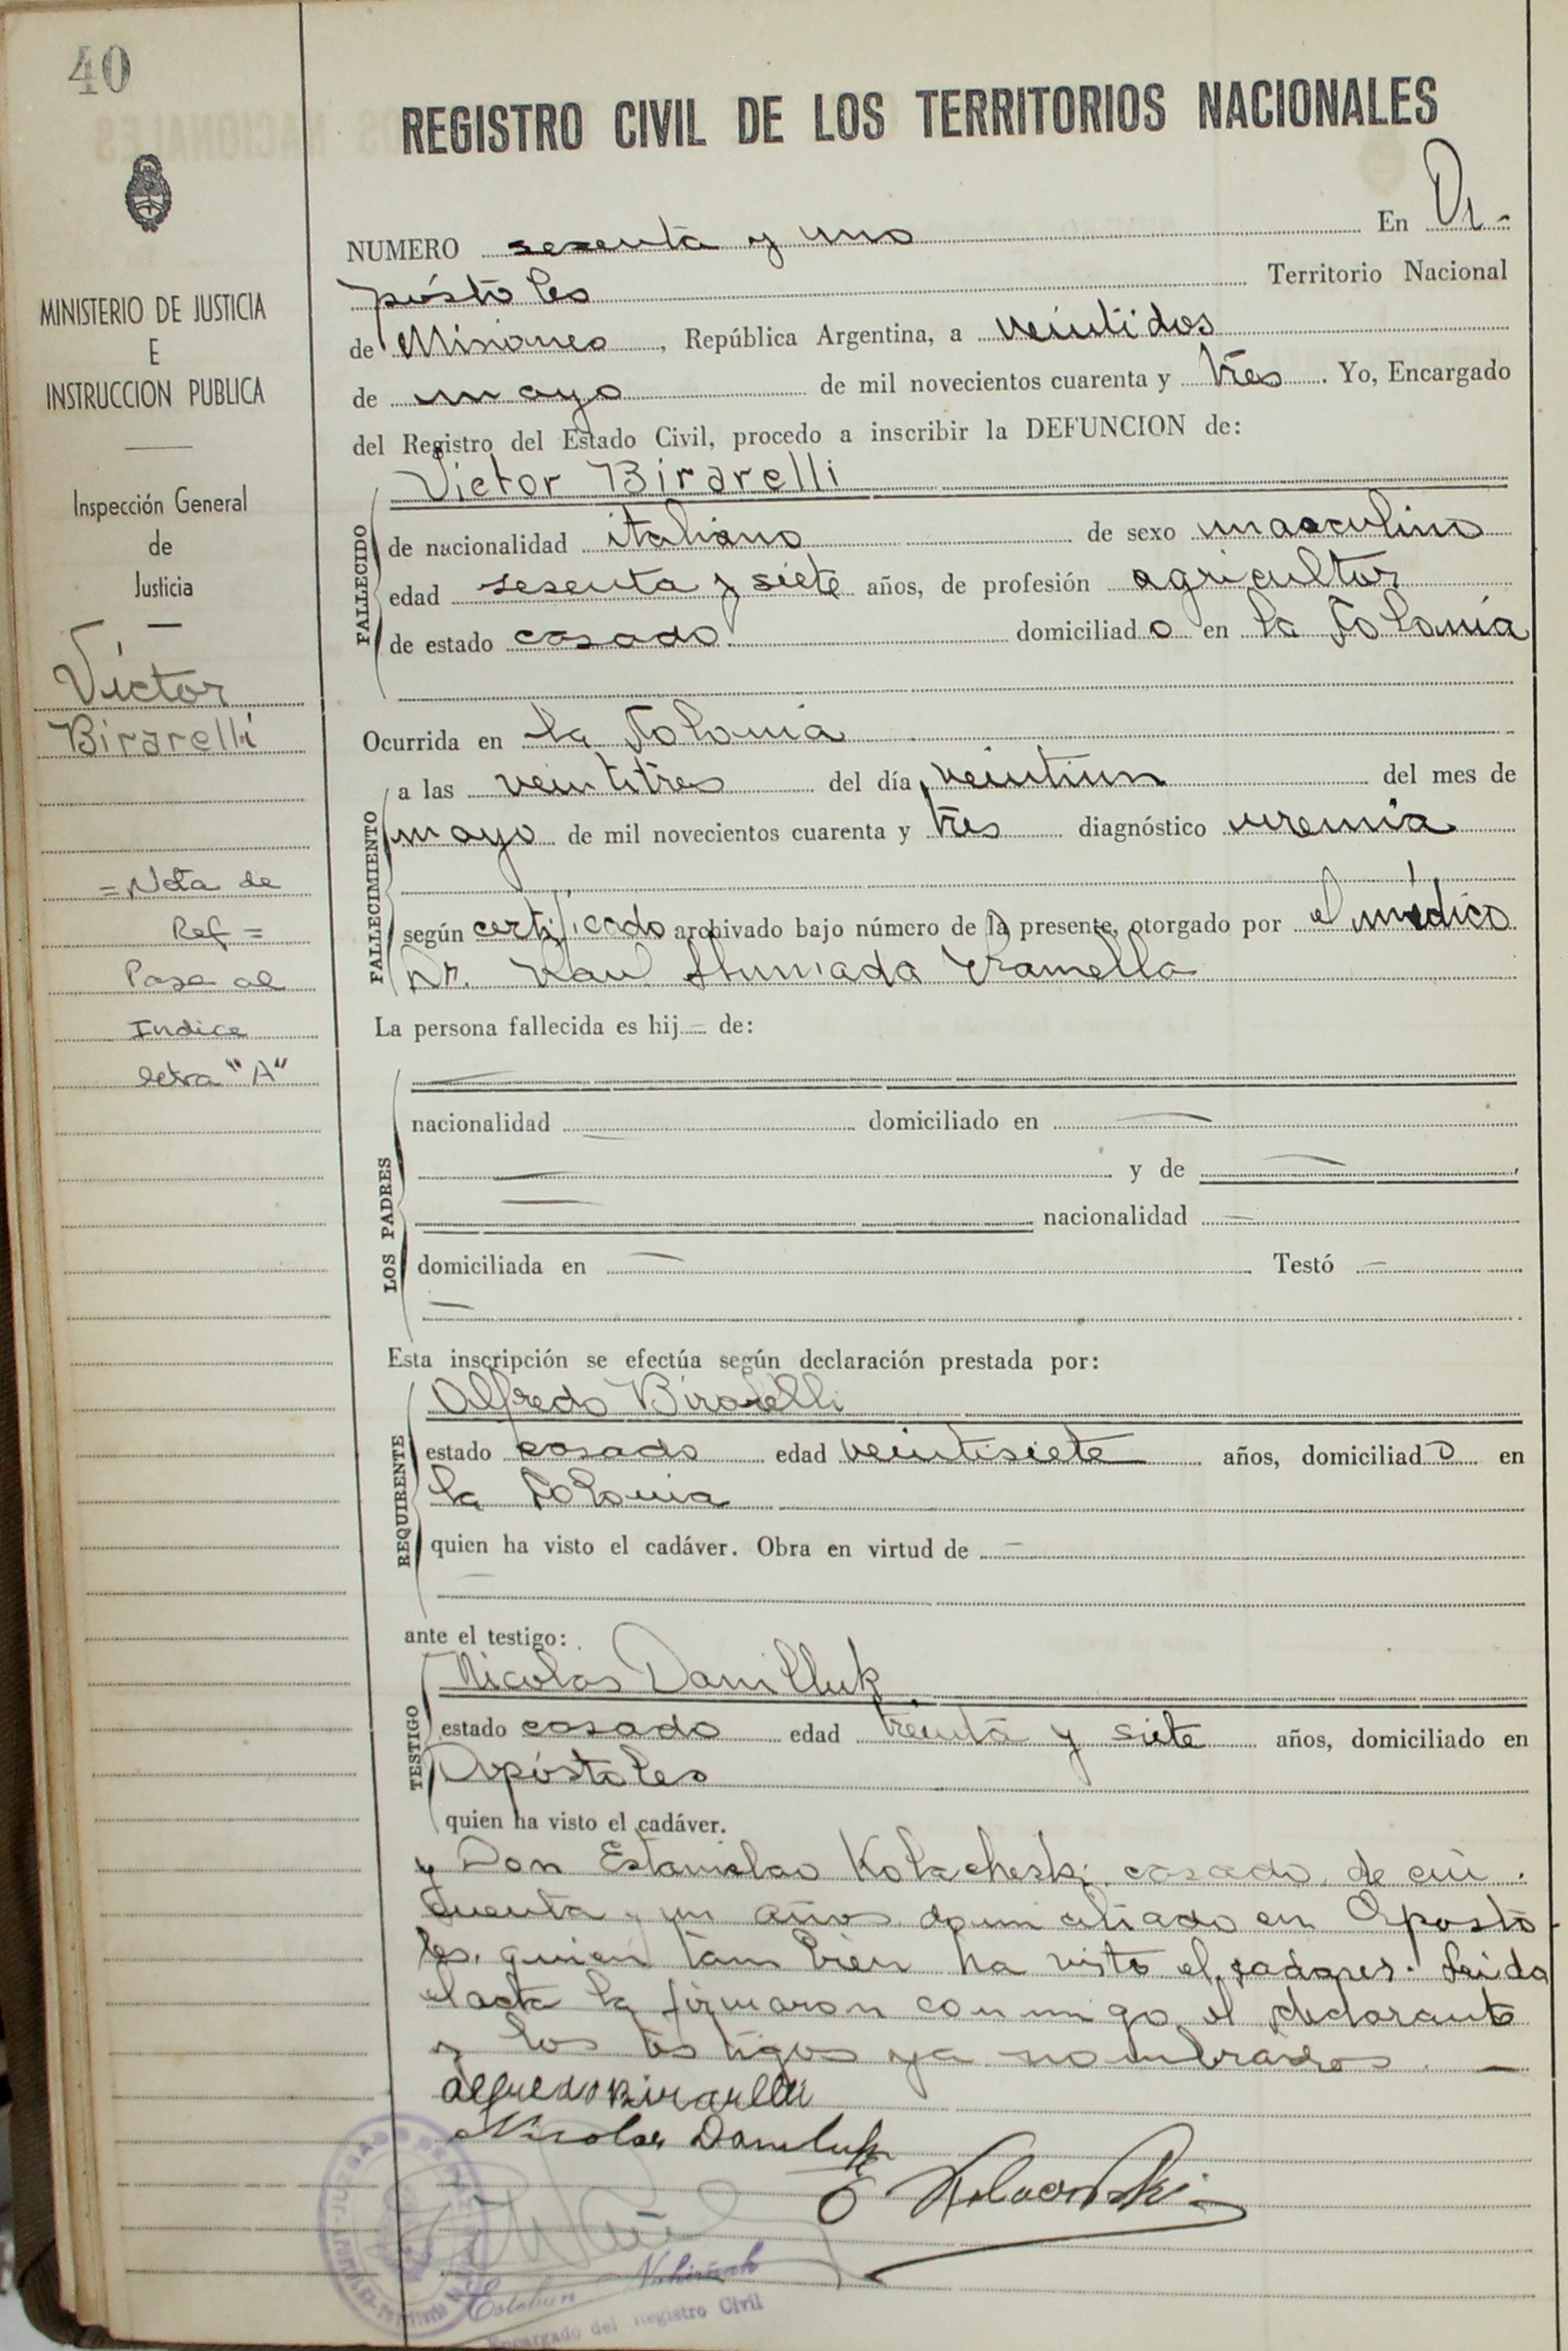 40
REGISTRO CIVIL DE LOS TERRITORIOS NACIONALES
MINISTERIO DE JUSTICIA
E
INSTRUCCION PUBLICA
Inspección General
de
Justicia
Víctor
Birarelli
=Nota de
Ref=
Pasa al
Indice
letra "A"
NUMERO sesenta y uno En A-
póstoles Territorio Nacional
de Misiones, República Argentina, a veintidos
de mayo de mil novecientos cuarenta y tres. Yo, Encargado
del Registro del Estado Civil, procedo a inscribir la DEFUNCION de:
Victor Birarelli
FALLECIDO
de nacionalidad italiano de sexo masculino
edad sesenta y siete años, de profesión agricultor
de estado casado domiciliado en la Colonia
Ocurrida en la Colonia
FALLECIMIENTO
a las veintitres del día veintiun del mes de
mayo de mil novecientos cuarenta y tres diagnóstico uremia
según certificado archivado bajo número de la presente, otorgado por el médico
Dr. Raul Ahumada Gramella
La persona fallecida es hij— de:
LOS PADRES
nacionalidad — domiciliado en —
— y de —
— nacionalidad —
domiciliada en — Testó —
—
Esta inscripción se efectúa según declaración prestada por:
REQUIRENTE
Alfredo Birarelli
estado casado edad veintisiete años, domiciliado en
la Colonia
quien ha visto el cadáver. Obra en virtud de —
ante el testigo:
TESTIGO
Nicolas Danilluk
estado casado edad treinta y siete años, domiciliado en
Apóstoles
quien ha visto el cadáver.
y Don Estanislao Kolacheski, casado, de cin-
cuenta y un años domiciliado en Aposto-
les, quien tambien ha visto el cadaver. Leida
el acta la firmaron conmigo el declarante
y los testigos ya nombrados. —
alfredo Birarelli
Nicolas Daniluk
E Kolaconski
Esteban
Encargado del Registro Civil